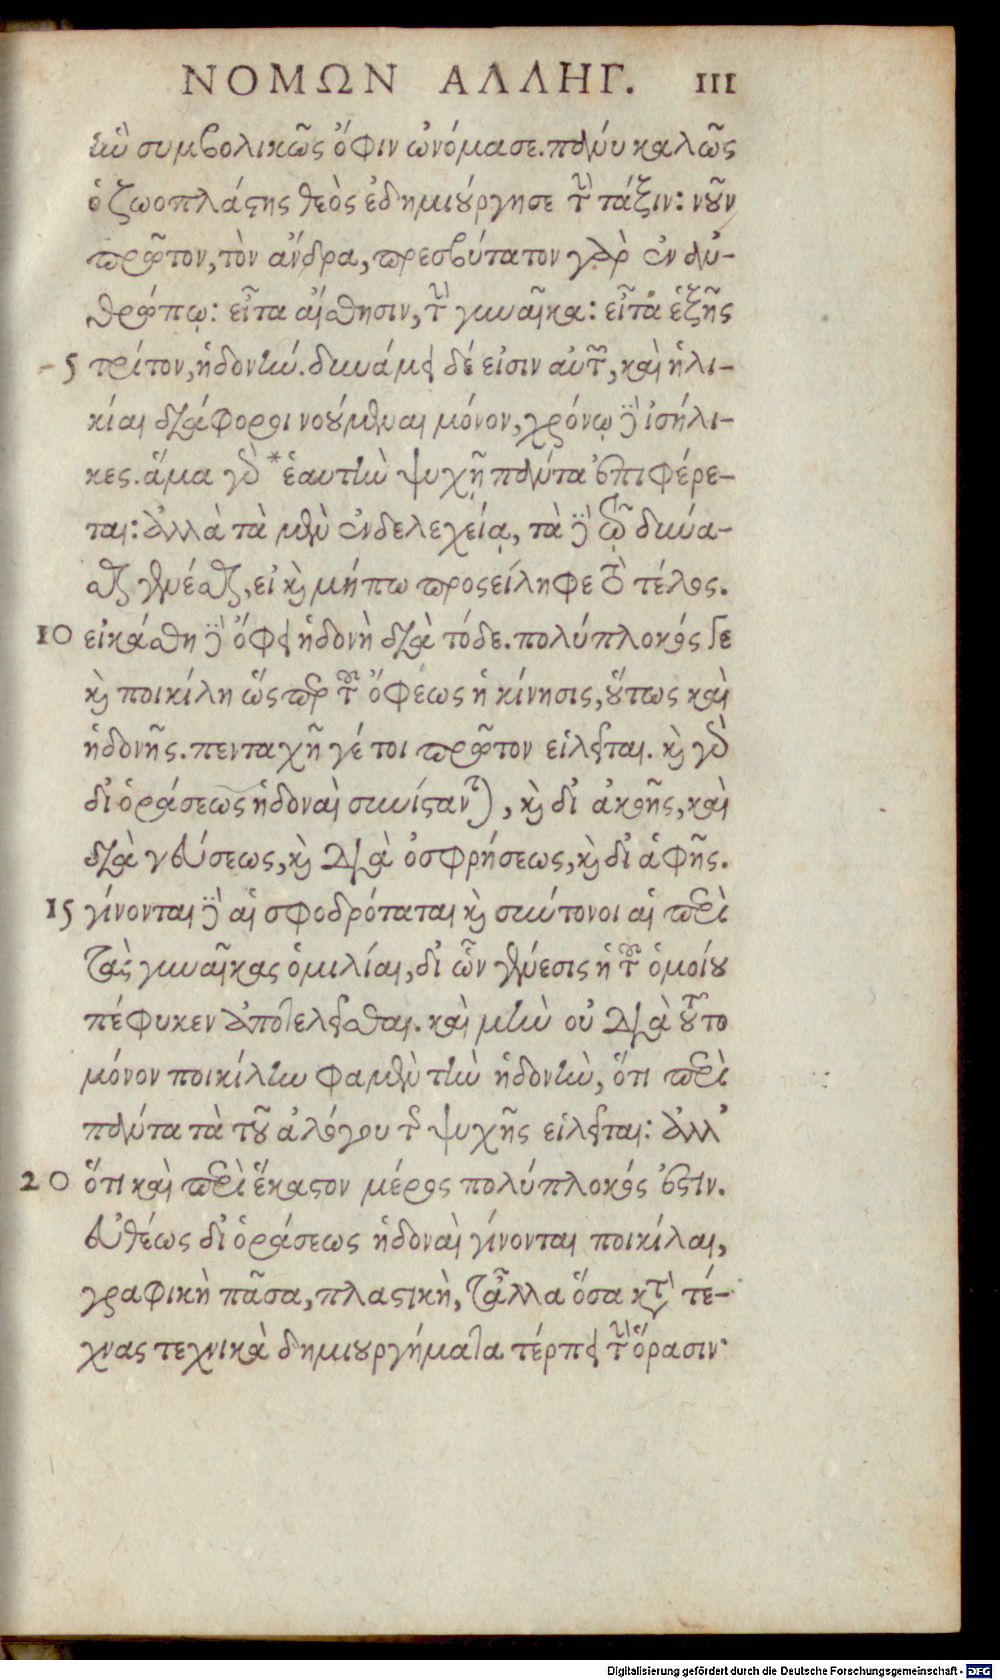 ΝΟΜΩΝ ΑΛΛΗΓ. 111
ἣν συμβολικῶς ὄφιν ὠνόμασε. πάνυ καλῶς
ὁ ζωοπλάστης θεὸς ἐδημιούργησε τὴν τάξιν: νοῦν
πρῶτον, τὸν ἄνδρα, πρεσβύτατον γὰρ ἐν ἀν-
θρώπῳ: εἶτα αἴσθησιν, τὴν γυναῖκα: εἶτα ἑξῆς
5 τρίτον, ἡδονήν. δυνάμει δέ εἰσιν αὐτῶν, καὶ ἡλι-
κίαι διάφοροι νοούμεναι μόνον, χρόνῳ δὲ ἰσήλι-
κες. ἅμα γὰρ *ἑαυτὴν ψυχῇ πάντα ἐπιφέρε-
ται: ἀλλὰ τὰ μὲν ἐνδελεχείᾳ, τὰ δὲ τῷ δύνα-
σθαι γενέσθαι, εἰ καὶ μήπω προσείληφε τὸ τέλος.
10 εἰκάσθη δὲ ὄφει ἡδονὴ διὰ τόδε. πολύπλοκός τε
καὶ ποικίλη ὥσπερ τοῦ ὄφεως ἡ κίνησις, οὕτως καὶ
ἡδονῆς. πενταχῇ γέ τοι πρῶτον εἱλεῖται. καὶ γὰρ
δι' ὁράσεως ἡδοναὶ συνίστανται, καὶ δι' ἀκοῆς, καὶ
διὰ γεύσεως, καὶ διὰ ὀσφρήσεως, καὶ δι' ἁφῆς.
15 γίνονται δὲ αἱ σφοδρόταται καὶ σύντονοι αἱ περὶ
τὰς γυναῖκας ὁμιλίαι, δι' ὧν γένεσις ἡ τοῦ ὁμοίου
πέφυκεν ἀποτελεῖσθαι. καὶ μὴν οὐ διὰ τοῦτο
μόνον ποικίλην φαμὲν τὴν ἡδονὴν, ὅτι περὶ
πάντα τὰ τοῦ ἀλόγου τῆς ψυχῆς εἱλεῖται: ἀλλ'
20 ὅτι καὶ περὶ ἕκαστον μέρος πολύπλοκός ἐστιν.
εὐθέως δι' ὁράσεως ἡδοναὶ γίνονται ποικίλαι,
γραφικὴ πᾶσα, πλαστικὴ, τἆλλα ὅσα κατὰ τέ-
χνας τεχνικὰ δημιουργήματα τέρπει τὴν ὅρασιν·
Digitalisierung gefördert durch die Deutsche Forschungsgemeinschaft - DFG